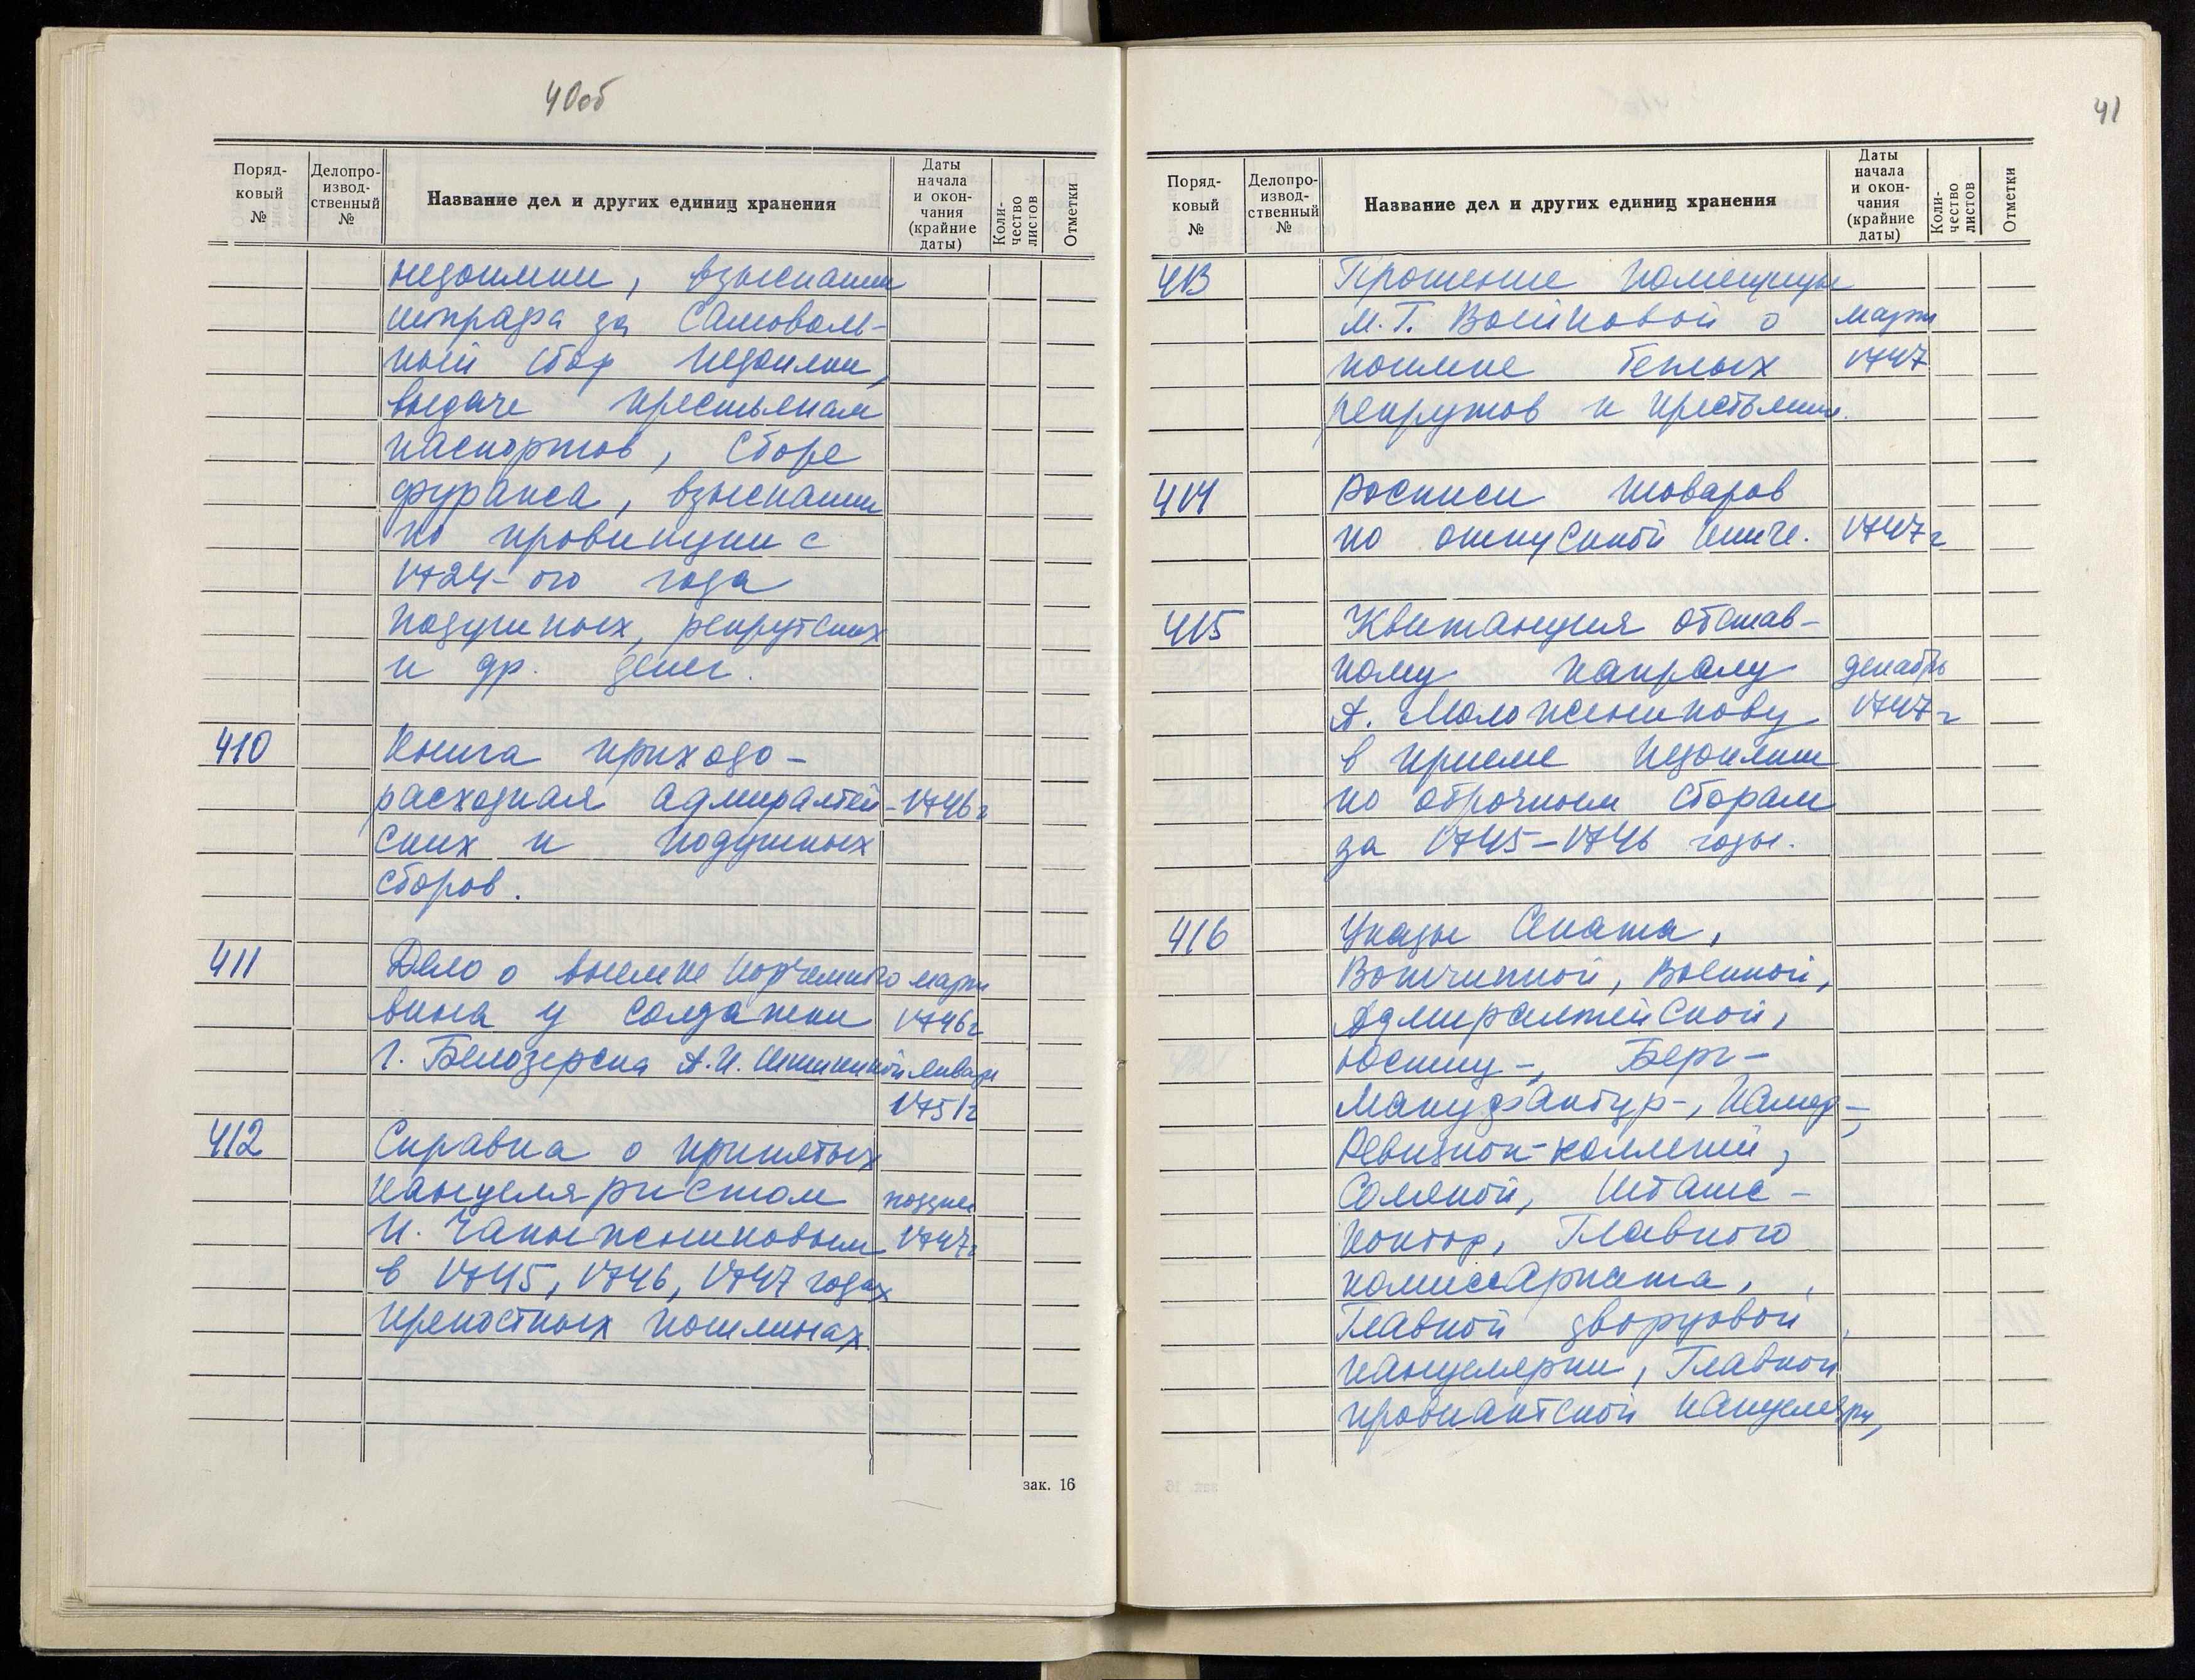 40об
Поряд-
ковый
№
Делопро-
извод-
ственный
№
Название дел и других единиц хранения
Даты
начала
и окон-
чания
(крайние
даты)
Коли-
чество
листов
Отметки
недоимки, взыскании
штрафа за самоволь-
ный сбор недоимки,
выдаче крестьянам
паспортов, сборе
фуража, взыскании
по провинции с
1724-ого года
подушных, рекрутских
и др. денег.
410 Книга приходо-
расходная адмиралтей- 1746г
ских и подушных
сборов.
411 Дело о выемке корчемного март
вина у солдатки 1746г
г. Белозерска А.И. январь
1751г
412 Справка о принятых
канцеляристом позднее
И. 1747г
в 1745, 1746, 1747 годах
крепостных пошлинах.
зак. 16
41
Поряд-
ковый
№
Делопро-
извод-
ственный
№
Название дел и других единиц хранения
Даты
начала
и окон-
чания
(крайние
даты)
Коли-
чество
листов
Отметки
413 Прошение помещицы
М.Г. Войковой о март
поимке беглых 1747
рекрутов и крестьянки.
414 Росписи товаров
по отпускной книге. 1747г
415 Квитанция отстав-
ному капралу декабрь
А. Моложенинову 1747г
в приеме недоимки
по оброчным сборам
за 1745-1746 годы.
416 Указы Сената,
Вотчинной, Военной,
Адмиралтейской,
Юстиц-, Берг-
Мануфактур-, Камер-,
Ревизион-коллегий,
Соляной, Штатс-
контор, Главного
комиссариата,
Главной дворцовой
канцелярии, Главной
провиантской канцеляри,